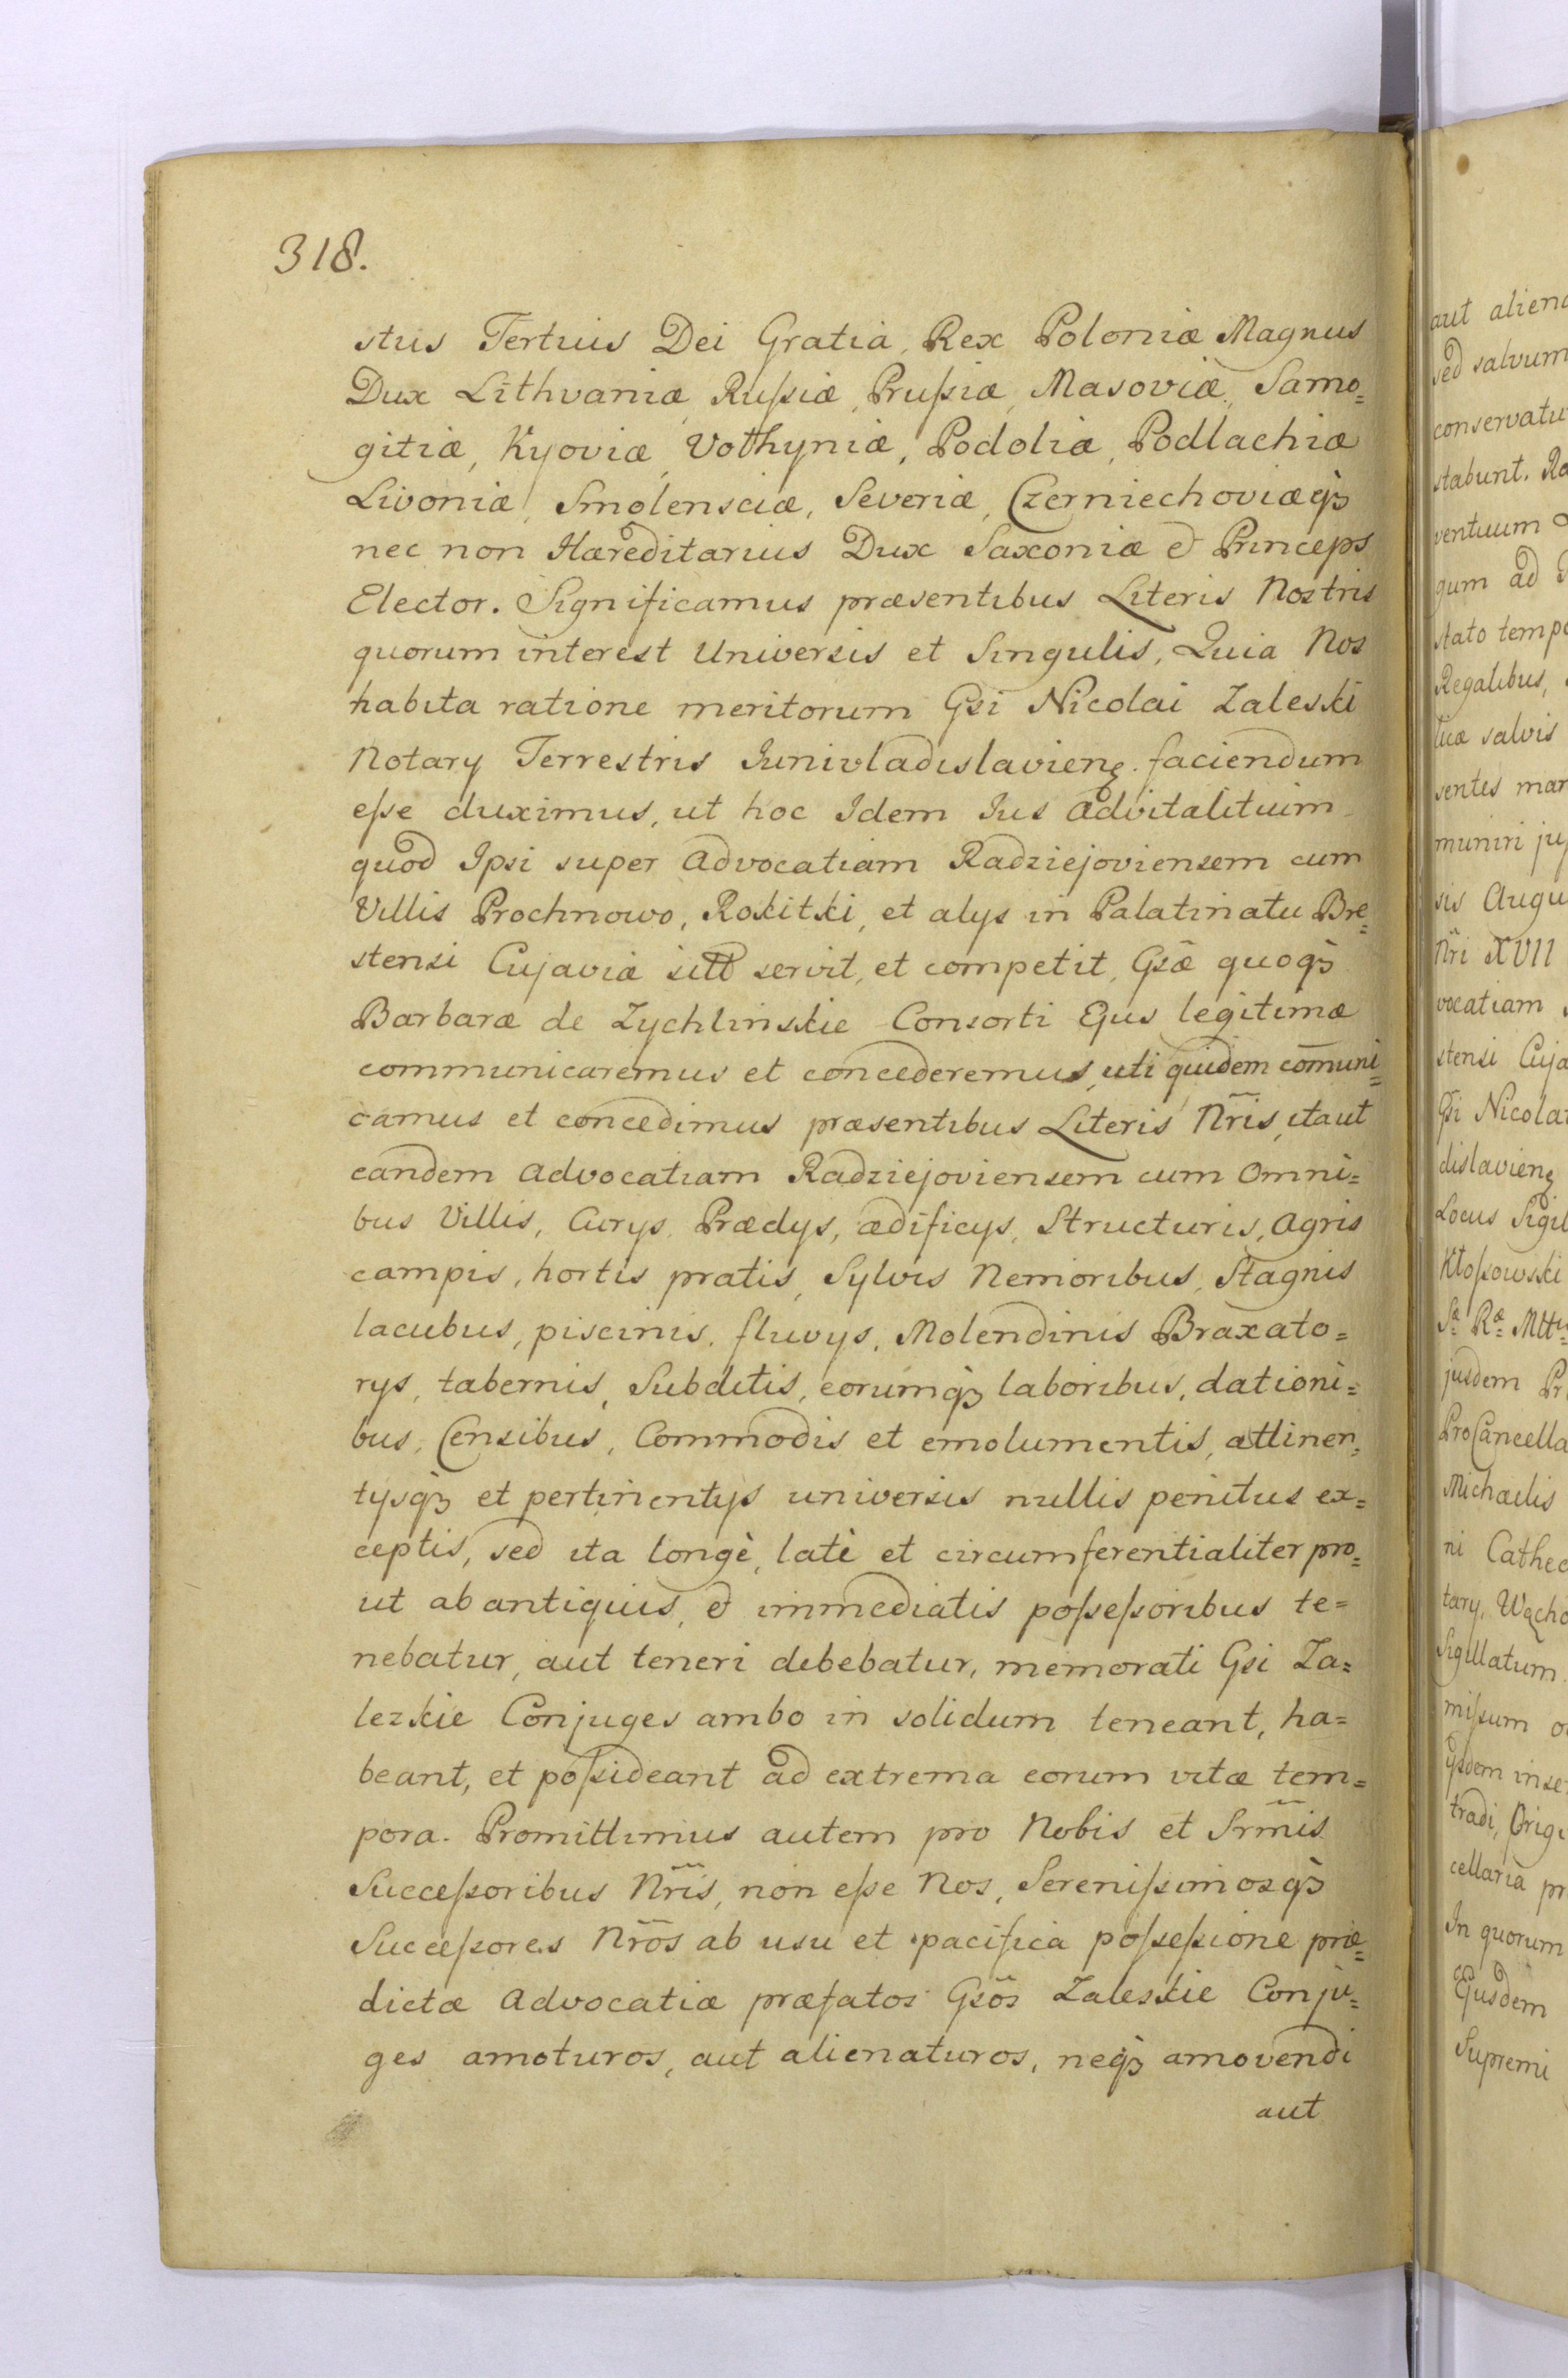 318.
stus Tertius Dei Gratia, Rex Poloniæ Magnus
Dux Lithvaniæ, Rußiæ, Prußiæ, Masoviæ, Samo=
gitiæ, Kyoviæ, Volhyniæ, Podoliæ, Podlachiæ
Livoniæ, Smolensciæ, Severiæ, Czerniechoviæqꝫ
nec non Hæreditarius Dux Saxoniæ & Princeps
Elector. Significamus præsentibus Literis Nostris
quorum interest Universis et Singulis, Quia Nos
habita ratione meritorum Gsi Nicolai Zaleski
Notary Terrestris Junivladislavienę. faciendum
eße duximus, ut hoc Idem Jus advitalitium
quod Ipsi super Advocatiam Radziejoviensem cum
Villis Prochnowo, Rokitki, et alys in Palatinatu Bre=
stensi Cujaviæ sitt servit, et competit, Gsæ quoqꝫ
Barbaræ de Zychlinskie Consorti Ejus legitimæ
communicaremus et concederemus, uti quidem com̄uni=
camus et concedimus præsentibus Literis Nr̃is, itaut
eandem Advocatiam Radziejoviensem cum Omni=
bus Villis, Curys, Prædys, ædificys, Structuris, Agris
campis, hortis pratis, Sylvis Nemoribus, Stagnis
lacubus, piscinis, fluvys, Molendinis Braxato=
rys, tabernis, Subditis, eorumqꝫ laboribus, dationi=
bus, Censibus, Commodis et emolumentis, attinen=
tysqꝫ et pertinentys universis nullis penitus ex=
ceptis, sed ita longè, latè et circumferentialiter pro=
ut ab antiquis, & immediatis poßeßoribus te=
nebatur, aut teneri debebatur, memorati Gsi Za=
leskie Conjuges ambo in solidum teneant, ha=
beant, et poßideant ad extrema eorum vitæ tem=
pora. Promittimus autem pro Nobis et Srm̃is
Succeßoribus Nr̃is, non eße Nos, Serenißimosqꝫ
Succeßores Nr̃os ab usu et pacifica poßeßione præ=
dictæ Advocatiæ præfatos Gsõs Zaleskie Conju=
ges amoturos, aut alienaturos, neqꝫ amovendi
aut
aut aliena
sed salvum
conservatu
stabunt. Ra
ventuum
gum ad
stato tempo
Regalibus,
salvis
sentes man
muniri ju
sis Augu
Nr̃i XVII
vocatiam
stensi Cuja
Gsi Nicola
dislavienę
Locus Sigil
Kłoßowski
Sæ Ræ Mtt
jusdem Pr
ProCancella
Michaelis
ni Cathed
tary, Wącho
Sigillatum
mißum
ysdem inse
tradi, Origi
cellaria pr
In quorum
Ejusdem
Supremi